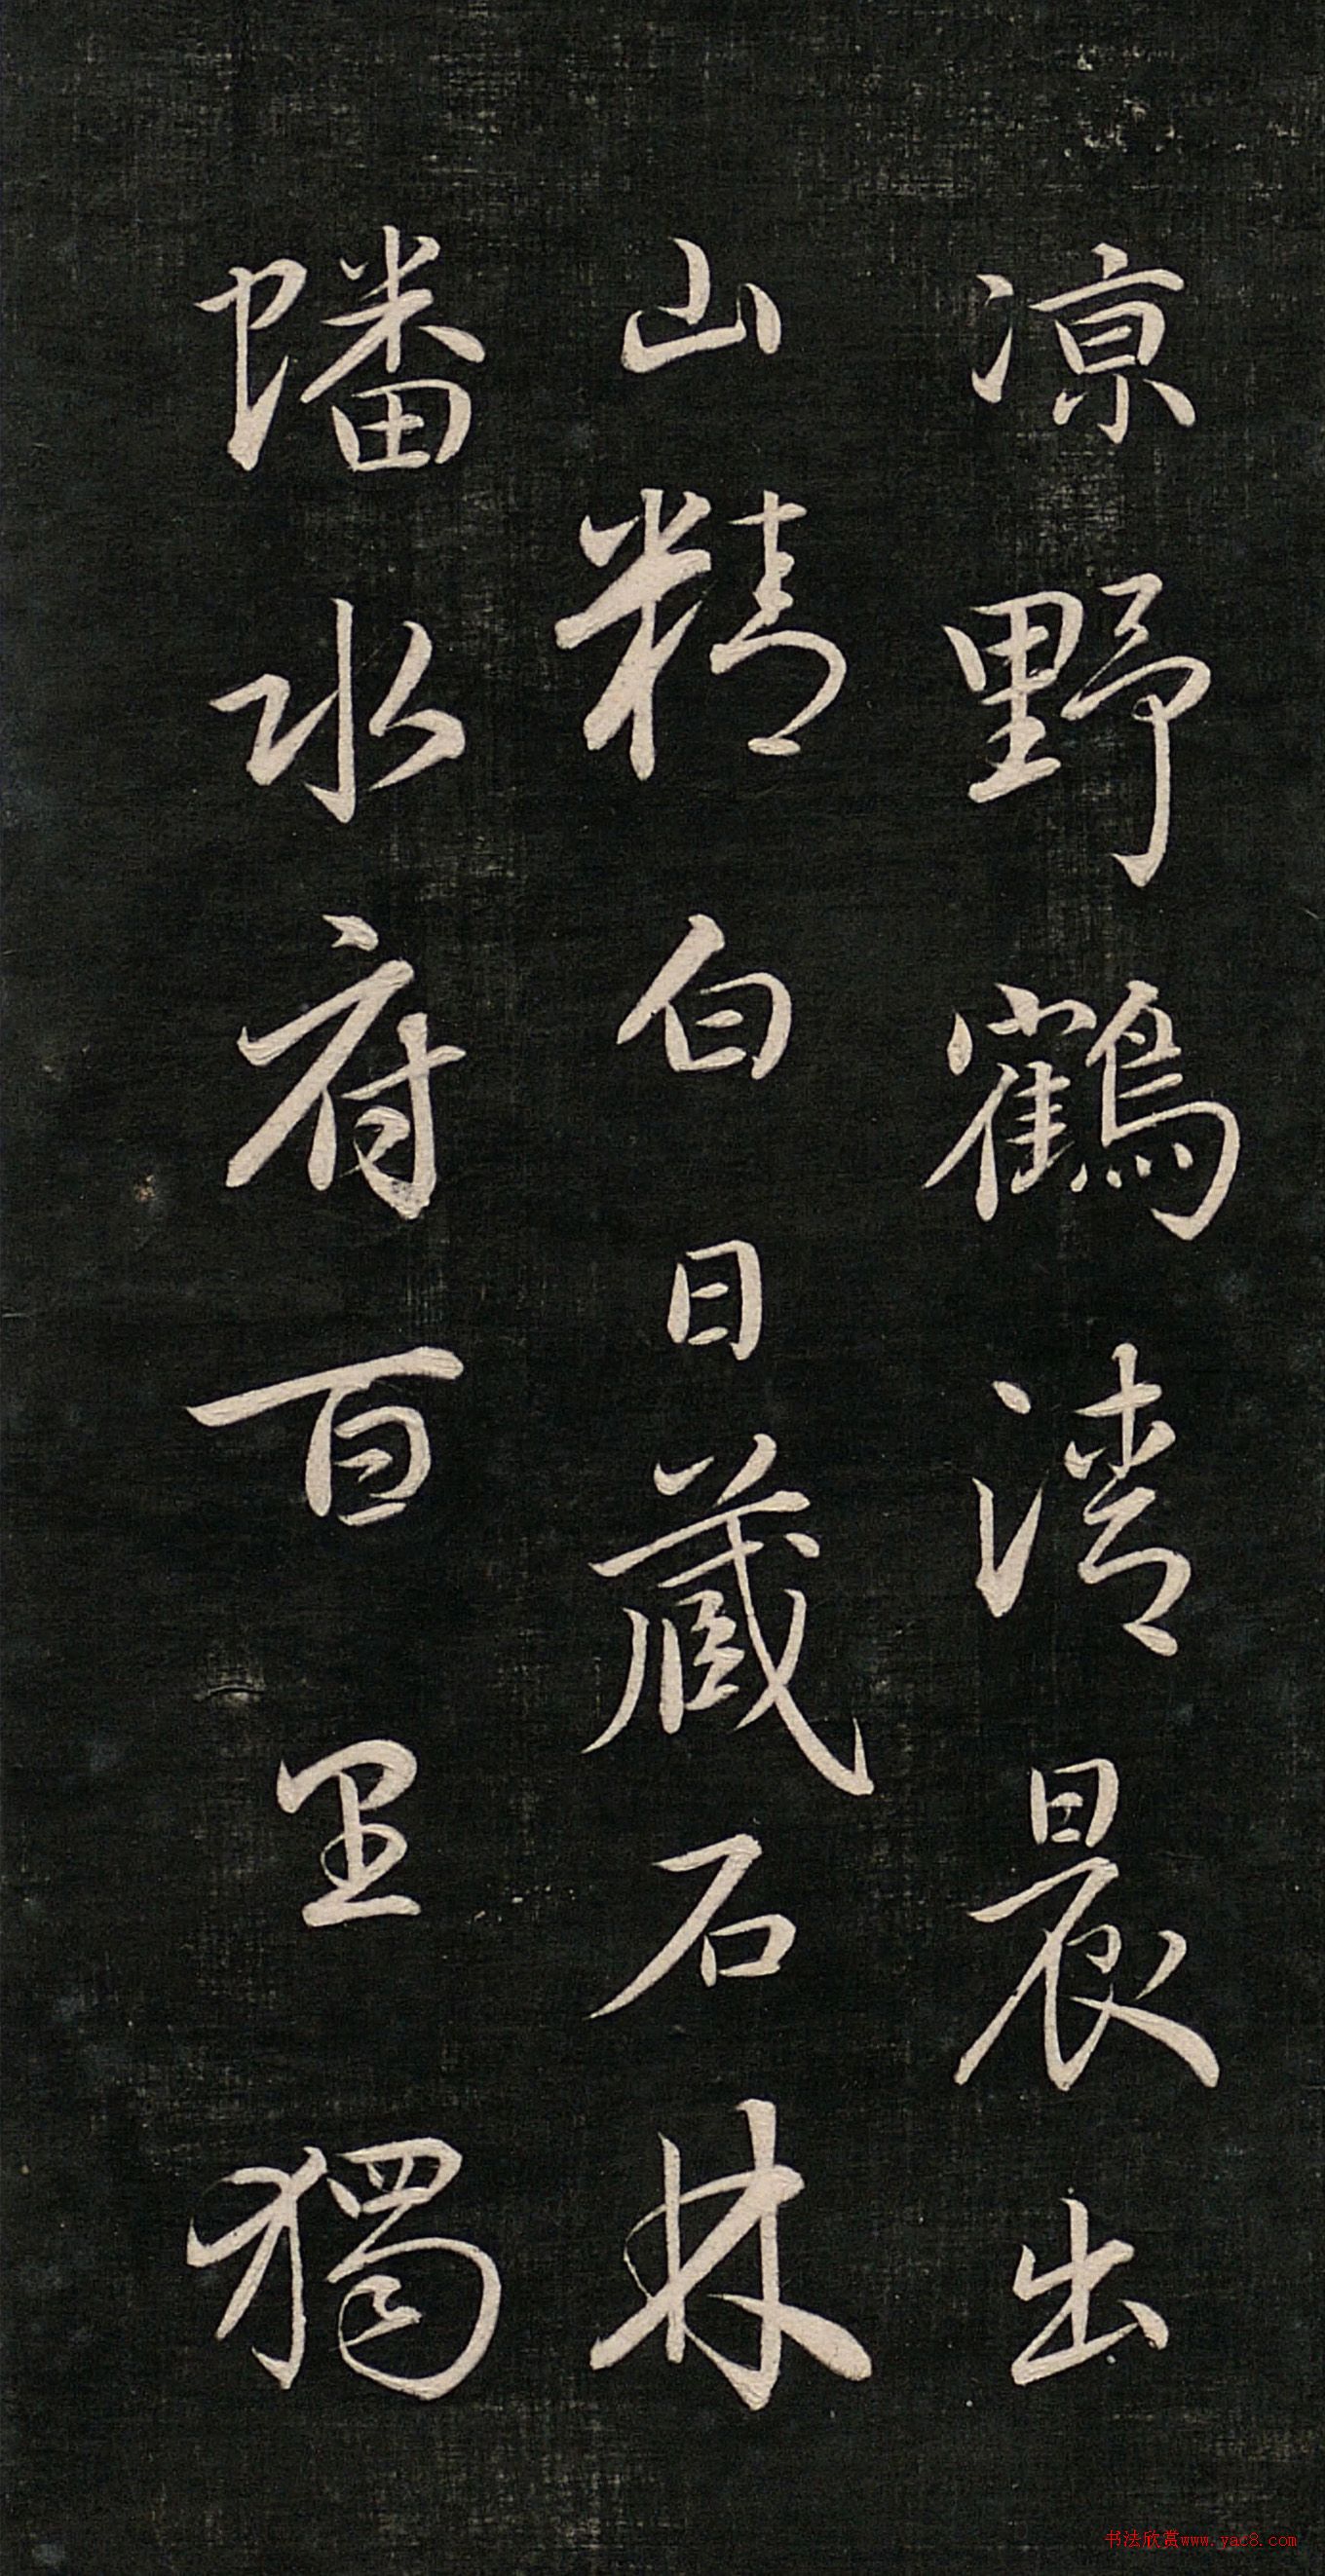 涼野鶴清晨出
山精白日藏石林
蟠水府百里獨
书法欣赏www.yac8.com